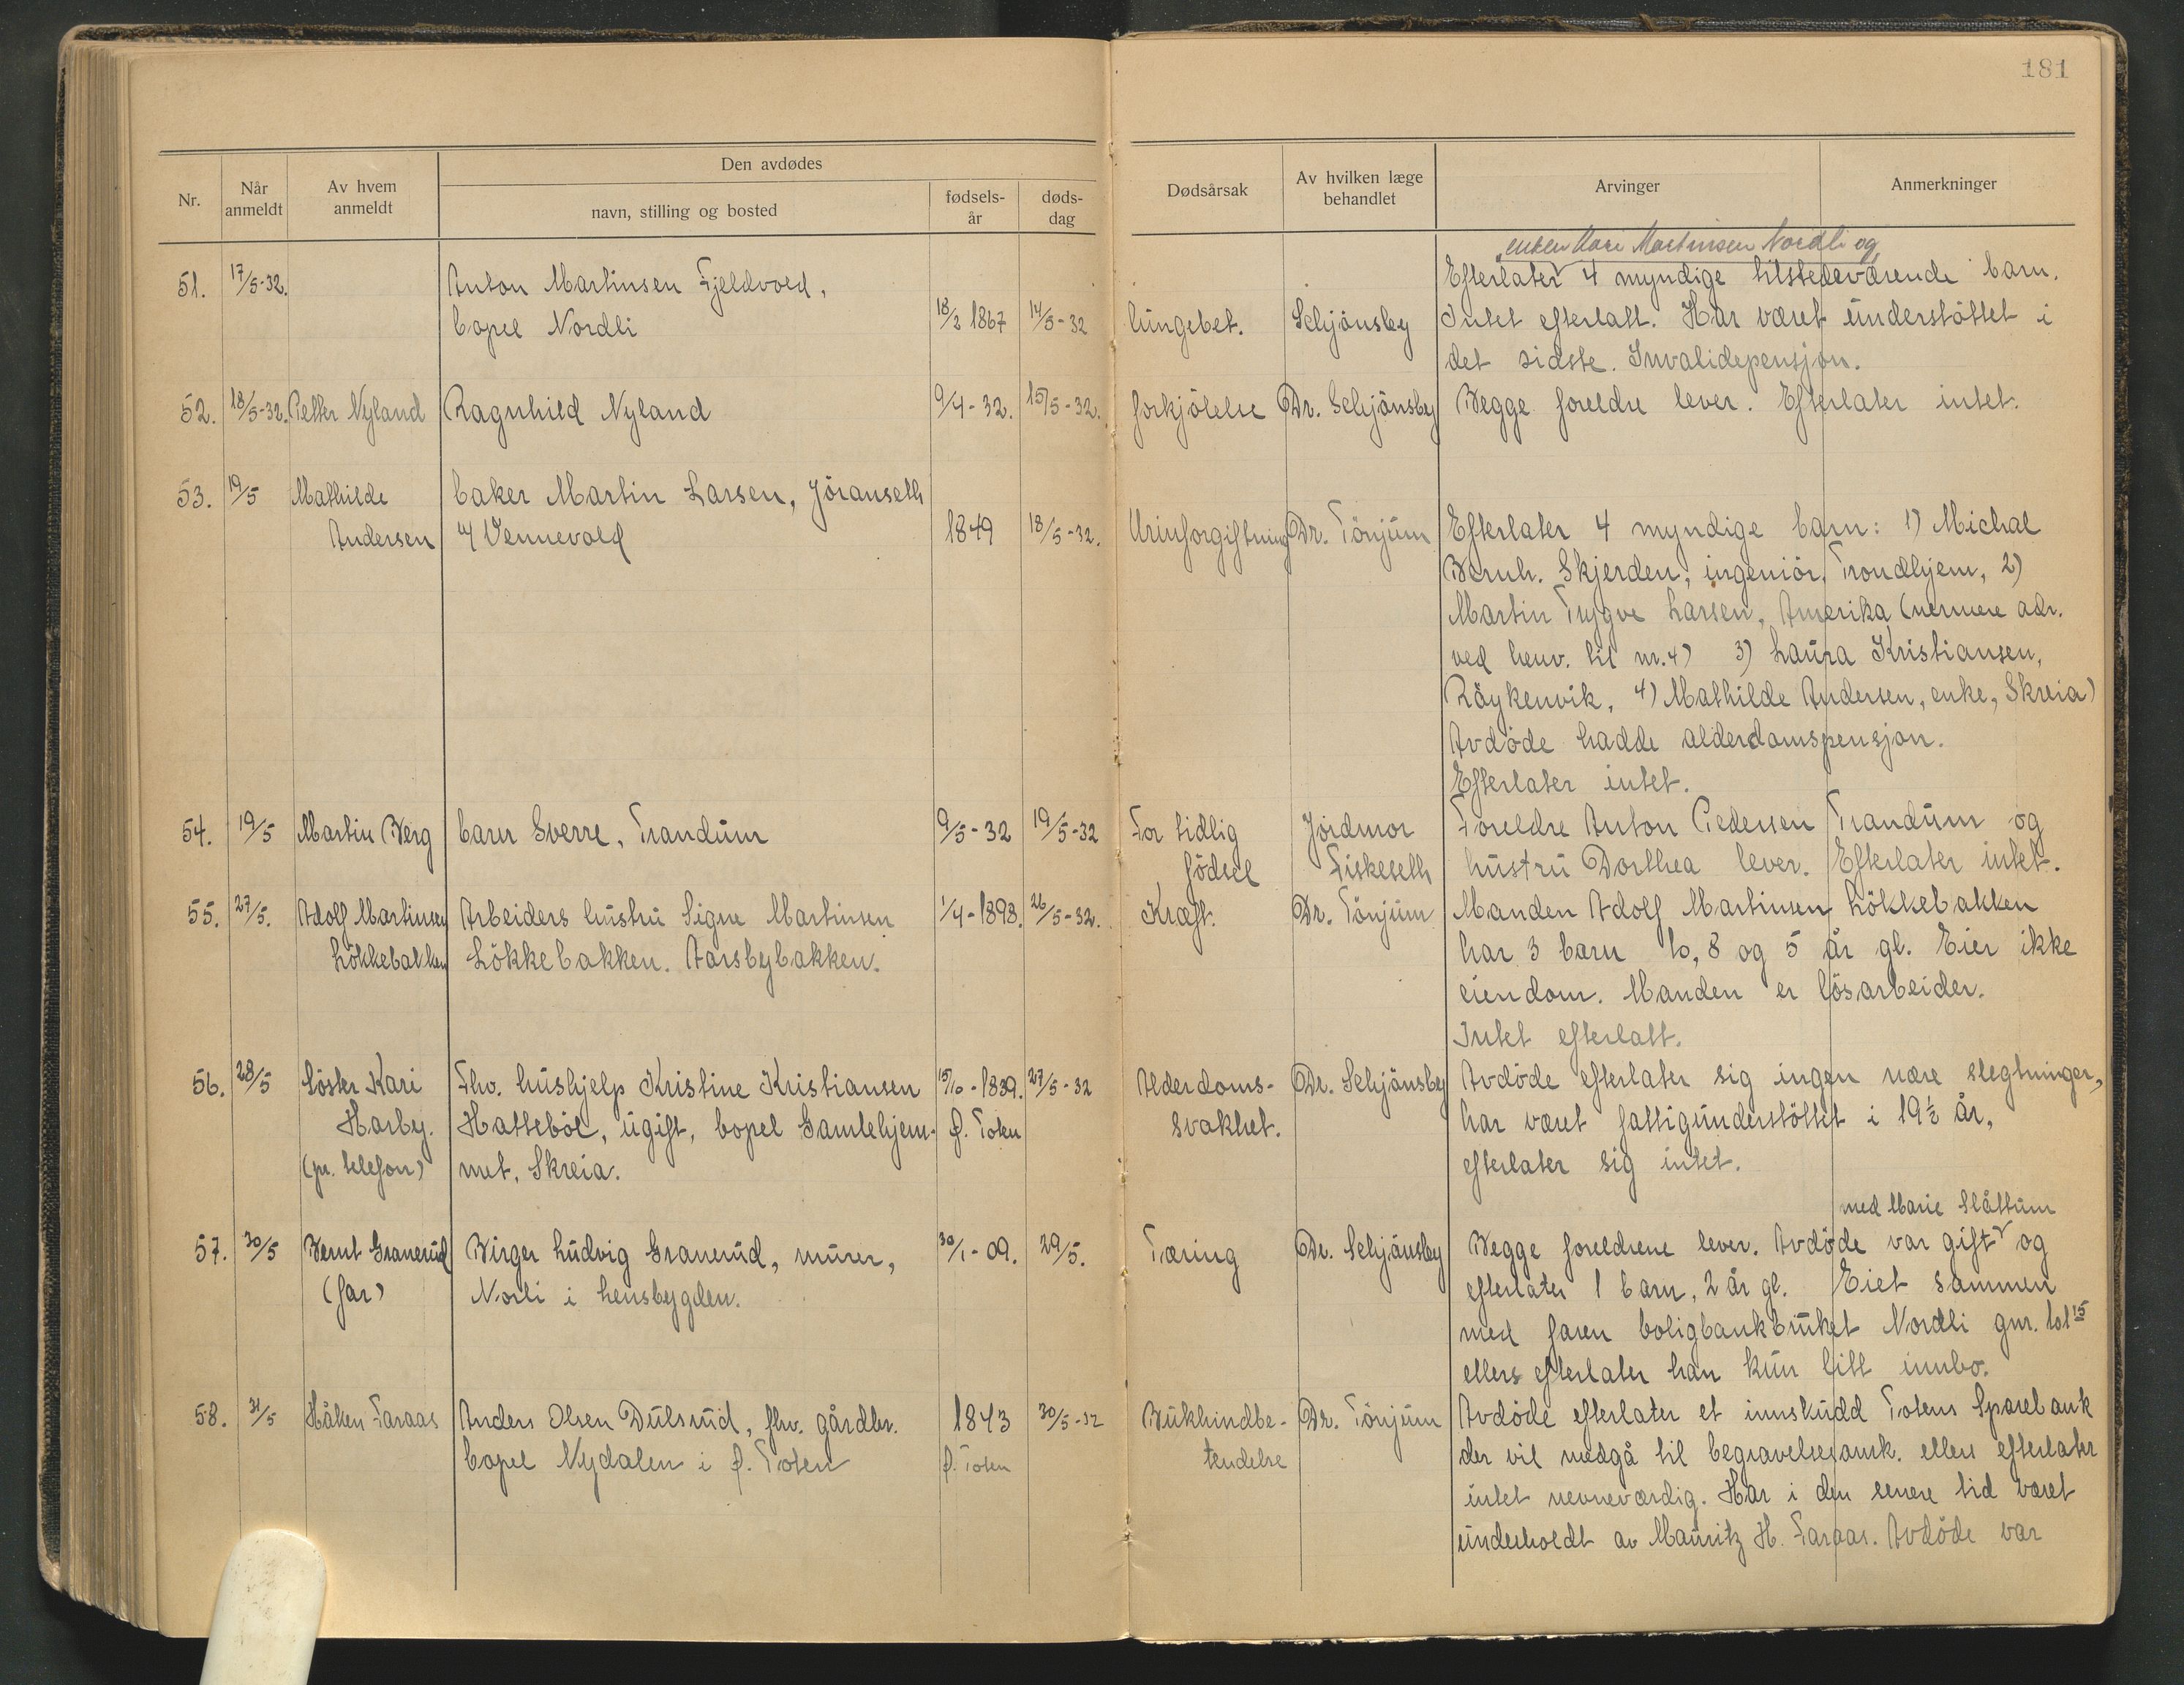 181
Nr.
Når anmeldt
Av hvem anmeldt
Den avdødes
navn, stilling og bosted
fødsels-år
døds-dag
Dødsårsak
Av hvilken læge behandlet
Arvinger
Anmerkninger
51. 17/5-32. Anton Martinsen Fjeldvold,
bopel Nordli 18/2 1867 14/5-32 lungebet. Schjönsby
enken Kari Martinsen Nordli og
Efterlater 4 myndige tilstedeværende barn.
Intet efterlatt. Har været understöttet i
det sidste. Invalidepensjon.
52. 18/5-32. Petter Nyland Ragnhild Nyland 9/4-32. 15/5-32. forkjölelse Dr. Schjönsby Begge foreldre lever. Efterlater intet.
53. 19/5 Mathilde baker Martin Larsen, Jöranseth
Andersen u/ Vennevold 1849 18/5-32. Urinforgiftning Dr. Tönjum Efterlater 4 myndige barn: 1) Michal
Bernh. Skjerden, ingeniör, Trondhjem, 2)
Martin Trygve Larsen, Amerika (nermere adr.
ved henv. til nr. 4) 3) Laura Kristiansen,
Röykenvik, 4) Mathilde Andersen, enke, Skreia)
Avdöde hadde alderdomspensjon.
Efterlater intet.
54. 19/5 Martin Berg barn Sverre, Trandum 9/5-32 19/5-32 For tidlig Jordmor Foreldre Anton Pedersen Trandum og
födsel Fiskeseth hustru Dorthea lever. Efterlater intet.
55. 27/5. Adolf Martinsen Arbeiders hustru Signe Martinsen 1/4-1893. 26/5-32. Kræft. Dr. Tönjum Manden Adolf Martinsen Lökkebakken
Lökkebakken Lökkebakken. Aarsbybakken. har 3 barn 10, 8 og 5 år gl. Eier ikke
eiendom. Manden er lösarbeider.
Intet efterlatt.
56. 28/5 Söster Kari Fhv. hushjelp Kristine Kristiansen 15/10-1839. 27/5-32 Alderdoms- Dr. Schjönsby Avdöde efterlater sig ingen nære slegtninger,
Harby. Hatteböl, ugift, bopel Gamlehjem- Ø. Toten svakhet. har været fattigunderstöttet i 19½ år,
(pr. telefon) met, Skreia. efterlater sig intet.
med Marie Slåttum
57. 30/5 Bernt Granerud Birger Ludvig Granerud, murer, 30/1-09. 29/5. Tæring Dr. Schjönsby Begge foreldrene lever. Avdöde var gift og
(far) Norli i Lensbygden. efterlater 1 barn, 2 år gl. Eiet sammen
med faren boligbankbruket Nordli gnr. 101 15
ellers efterlater han kun litt innbo.
58. 31/5 Håken Faraas Anders Olsen Dulsrud, fhv. gårdbr. 1843 30/5-32 Bukhindbe- Dr. Tönjum Avdöde efterlater et innskudd Totens Sparebank
bopel Nydalen i Ø. Toten Ø. Toten tendelse der vil medgå til begravelsesomk. ellers efterlater
intet nevneværdig. Har i den senere tid været
underholdt av Mauritz H. Faraas. Avdöde var